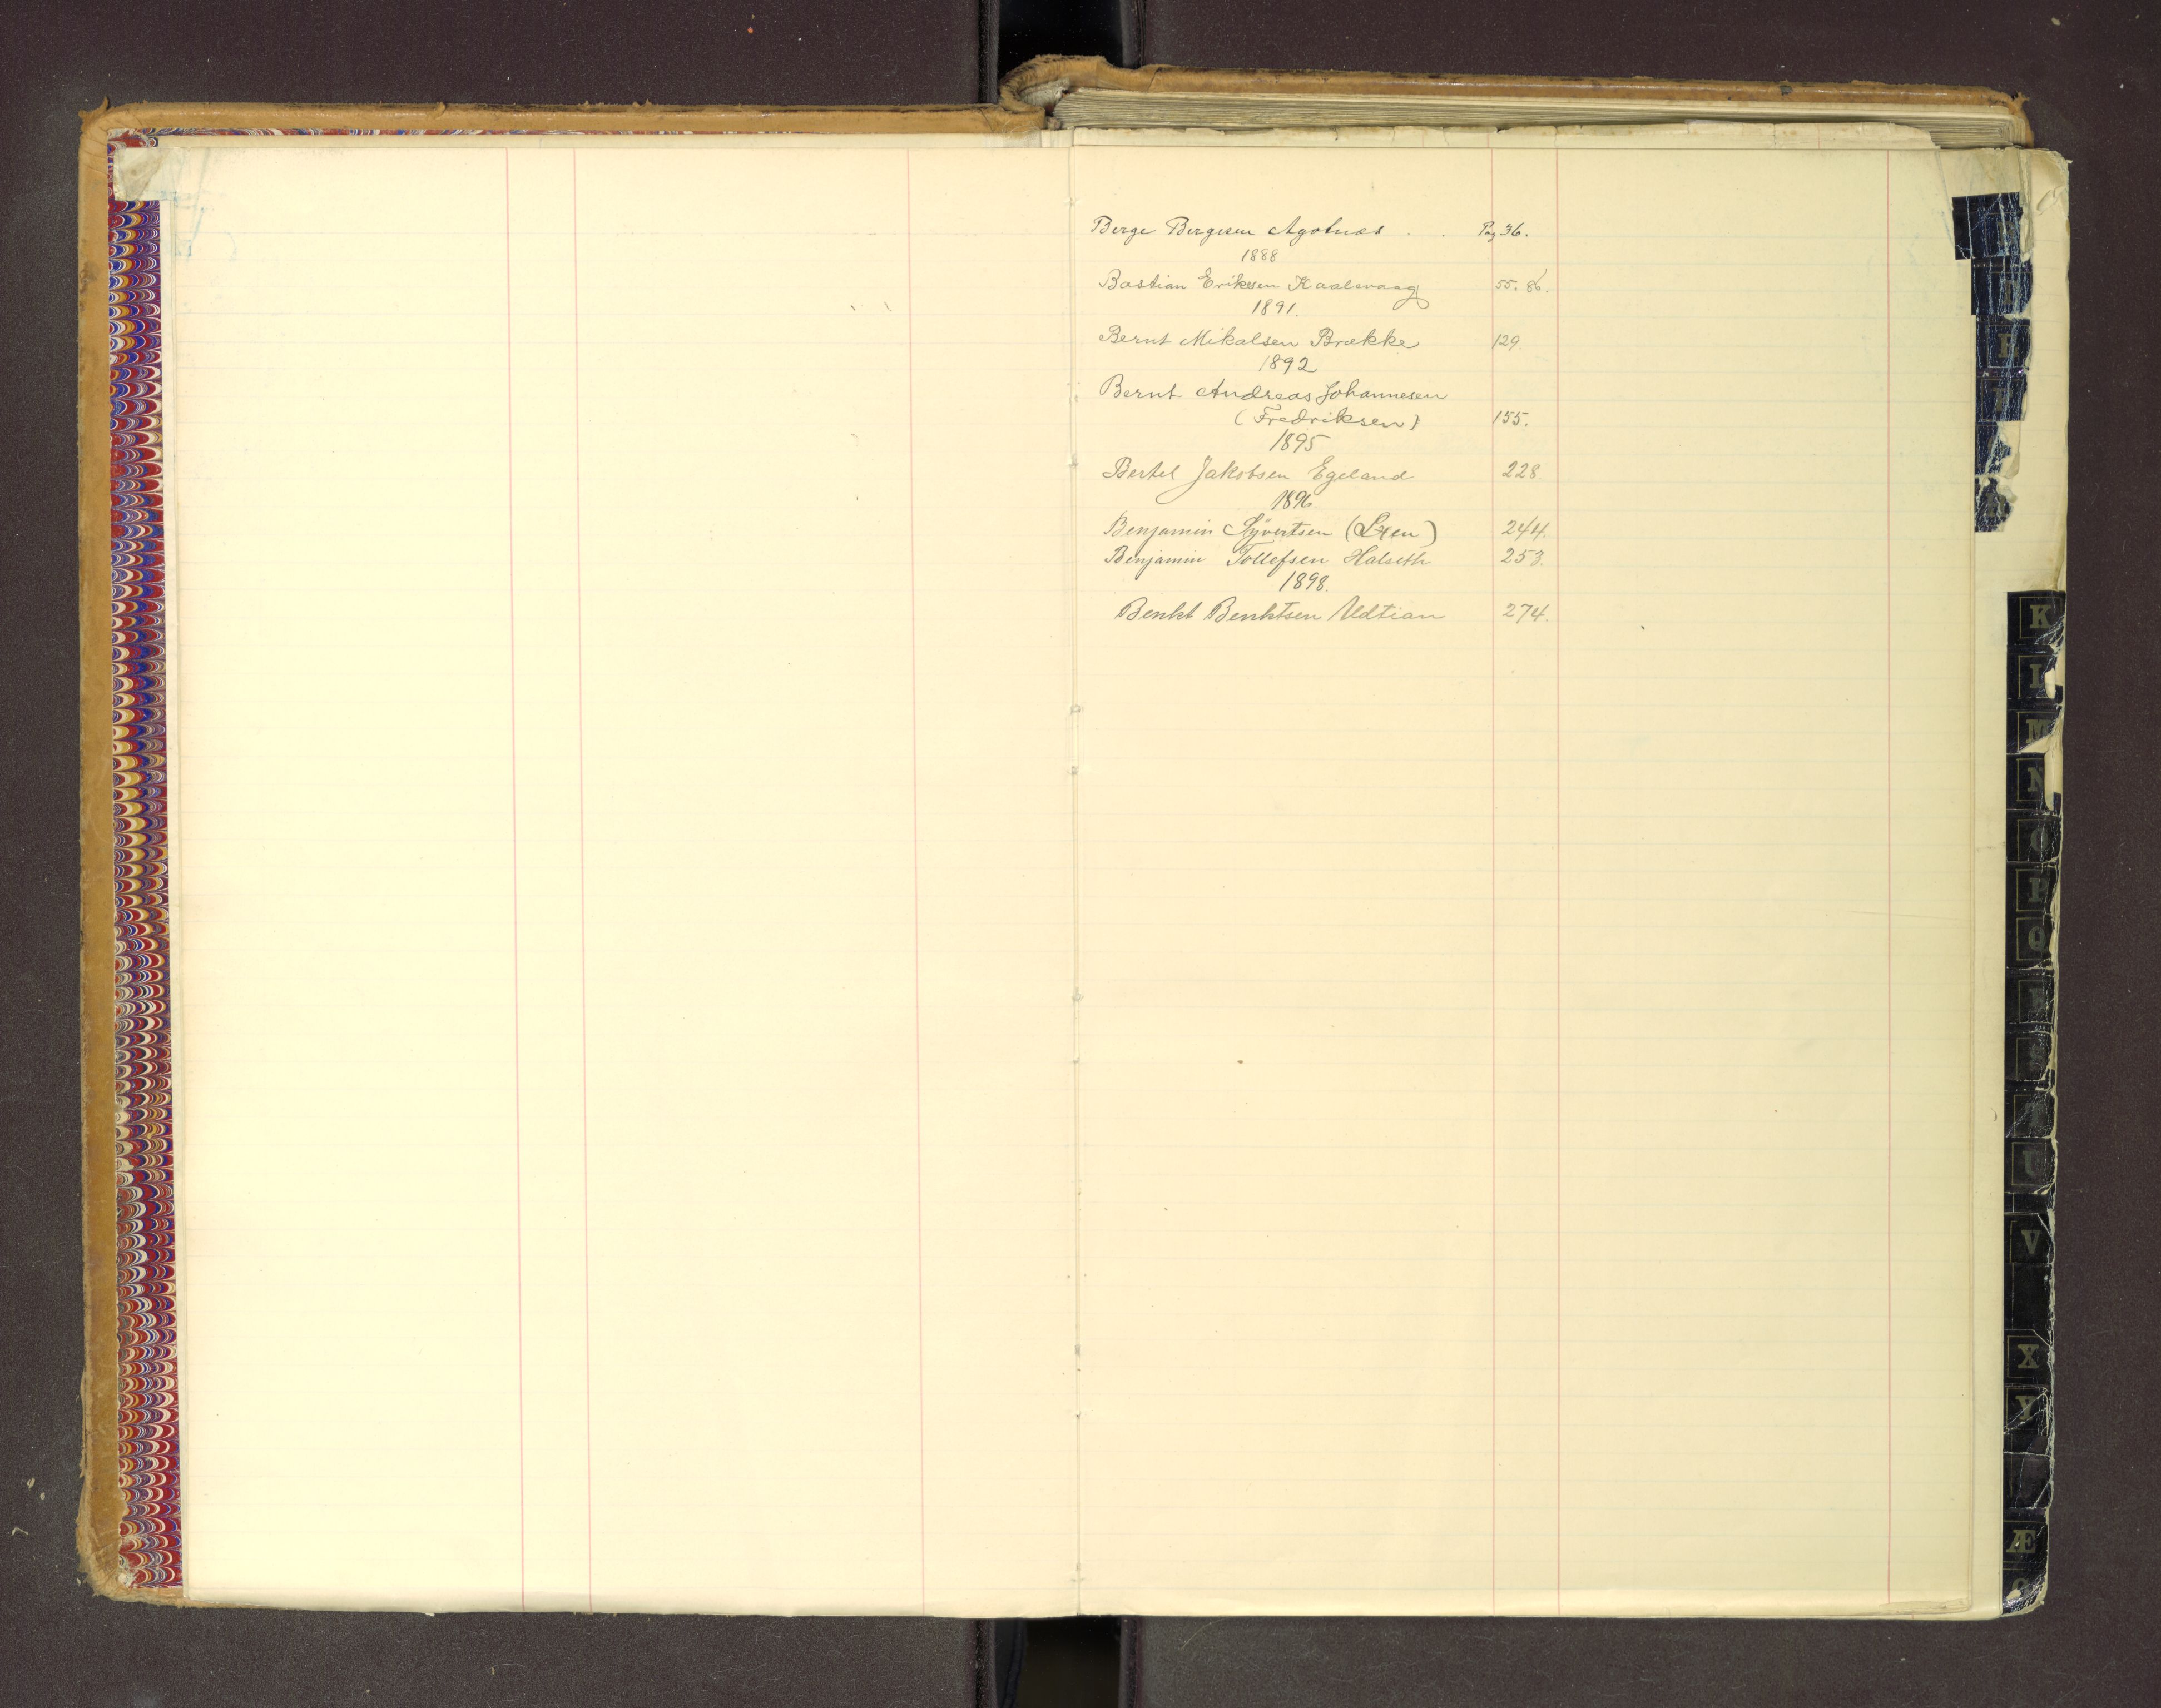 Berge Bergesen Agotnæs . . Pag 36.
1888
Bastian Eriksen Kaalevaag 55. 86.
1891.
Bernt Mikalsen Brække 129
1892
Bernt Andreas Johannesen
(Fredriksen) 155.
1895
Bertel Jakobsen Egeland 228.
1896
Benjamin Syvertsen 244.
Benjamin Tollefsen Halseth 253.
1898.
Benkt Benktsen 274.
K
L
M
N
O
P
Q
U
V
X
Y
Æ